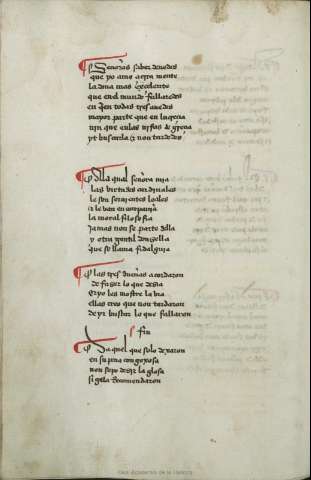 Señoras saber deuedes
que yo amo a otra mente
la dona mas exçelente
que en el mundo fallaredes
en en todas tres auedes
mayor parte que en
que en las
yt buscarla & non tardedes
Della qual señora mia
las virtudes cardinales
le son seruientes leales
& le van en conpañia
la moral filosofia
jamas non se parte della
y otra gentil donzella
que se llama fidalguia
las tres dueñas acordaron
de fazer lo que dezia
e yo les mostre la via
ellas creo que non tardaron
de yr buscar lo que fallaron
fin
Daquel que solo dexaron
en su pena congoxosa
non sepo dezir la glosa
si gela Recomendaron
Real Academia de la Historia